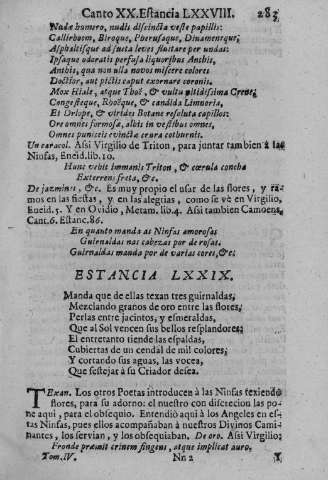 Canto XX. Estancia LXXVIII. 283
Nuda humero, nudis discincta veste papillis:
Callirhoem, Biroque, Pherusaque, Dinameneque;
Asphaltisque ad sueta leves fluitare per undas:
Ipsaque odoratis perfusa liquoribus Anthis,
Anthis, qua non ulla novos miscere colores
Doctior, aut pictis caput exornare coronis.
Mox Hiale, atque Thoë, & vultu nitidissima Crene;
Congesteque, Rooëque, & candida Limnoria,
Et Driope, & virides Botane resoluta capillos:
Ore omnes formosæ, albis in vestibus omnes,
Omnes puniceis evinctæ crura cothurnis.
Un caracol. Assi Virgilio de Triton, para juntar tambien à las
Ninfas, Eneid. lib. 10.
Hunc vehit immanis Triton, & cœrula concha
Exterrens freta, &c.
De jazmines, &c. Es muy propio el usar de las flores, y ra-
mos en las fiestas, y en las alegrias, como se vè en Virgilio,
Eneid. 5. Y en Ovidio, Metam. lib. 4. Assi tambien Camoens,
Cant. 6. Estanc. 86.
En quanto manda as Ninfas amorosas
Guirnaldas nas cabezas por de rosas.
Guirnaldas manda por de varias cores, &c:
ESTANCIA LXXIX.
Manda que de ellas texan tres guirnaldas,
Mezclando granos de oro entre las flores,
Perlas entre jacintos, y esmeraldas,
Que al Sol vencen sus bellos resplandores;
El entretanto tiende las espaldas,
Cubiertas de un cendal de mil colores;
Y cortando sus aguas, las vocea,
Que festejar à su Criador desea.
TExan. Los otros Poetas introducen à las Ninfas texiendo
flores, para su adorno: el nuestro con discrecion las po-
ne aqui, para el obsequio. Entendiò aqui à los Angeles en es-
tas Ninfas, pues ellos acompañaban à nuestros Divinos Cami-
nantes, los servian, y los obsequiaban. De oro. Assi Virgilio;
Fronde præmit crinem fingens, atque implicat auro.
Tom. IV. Nn 2 Y